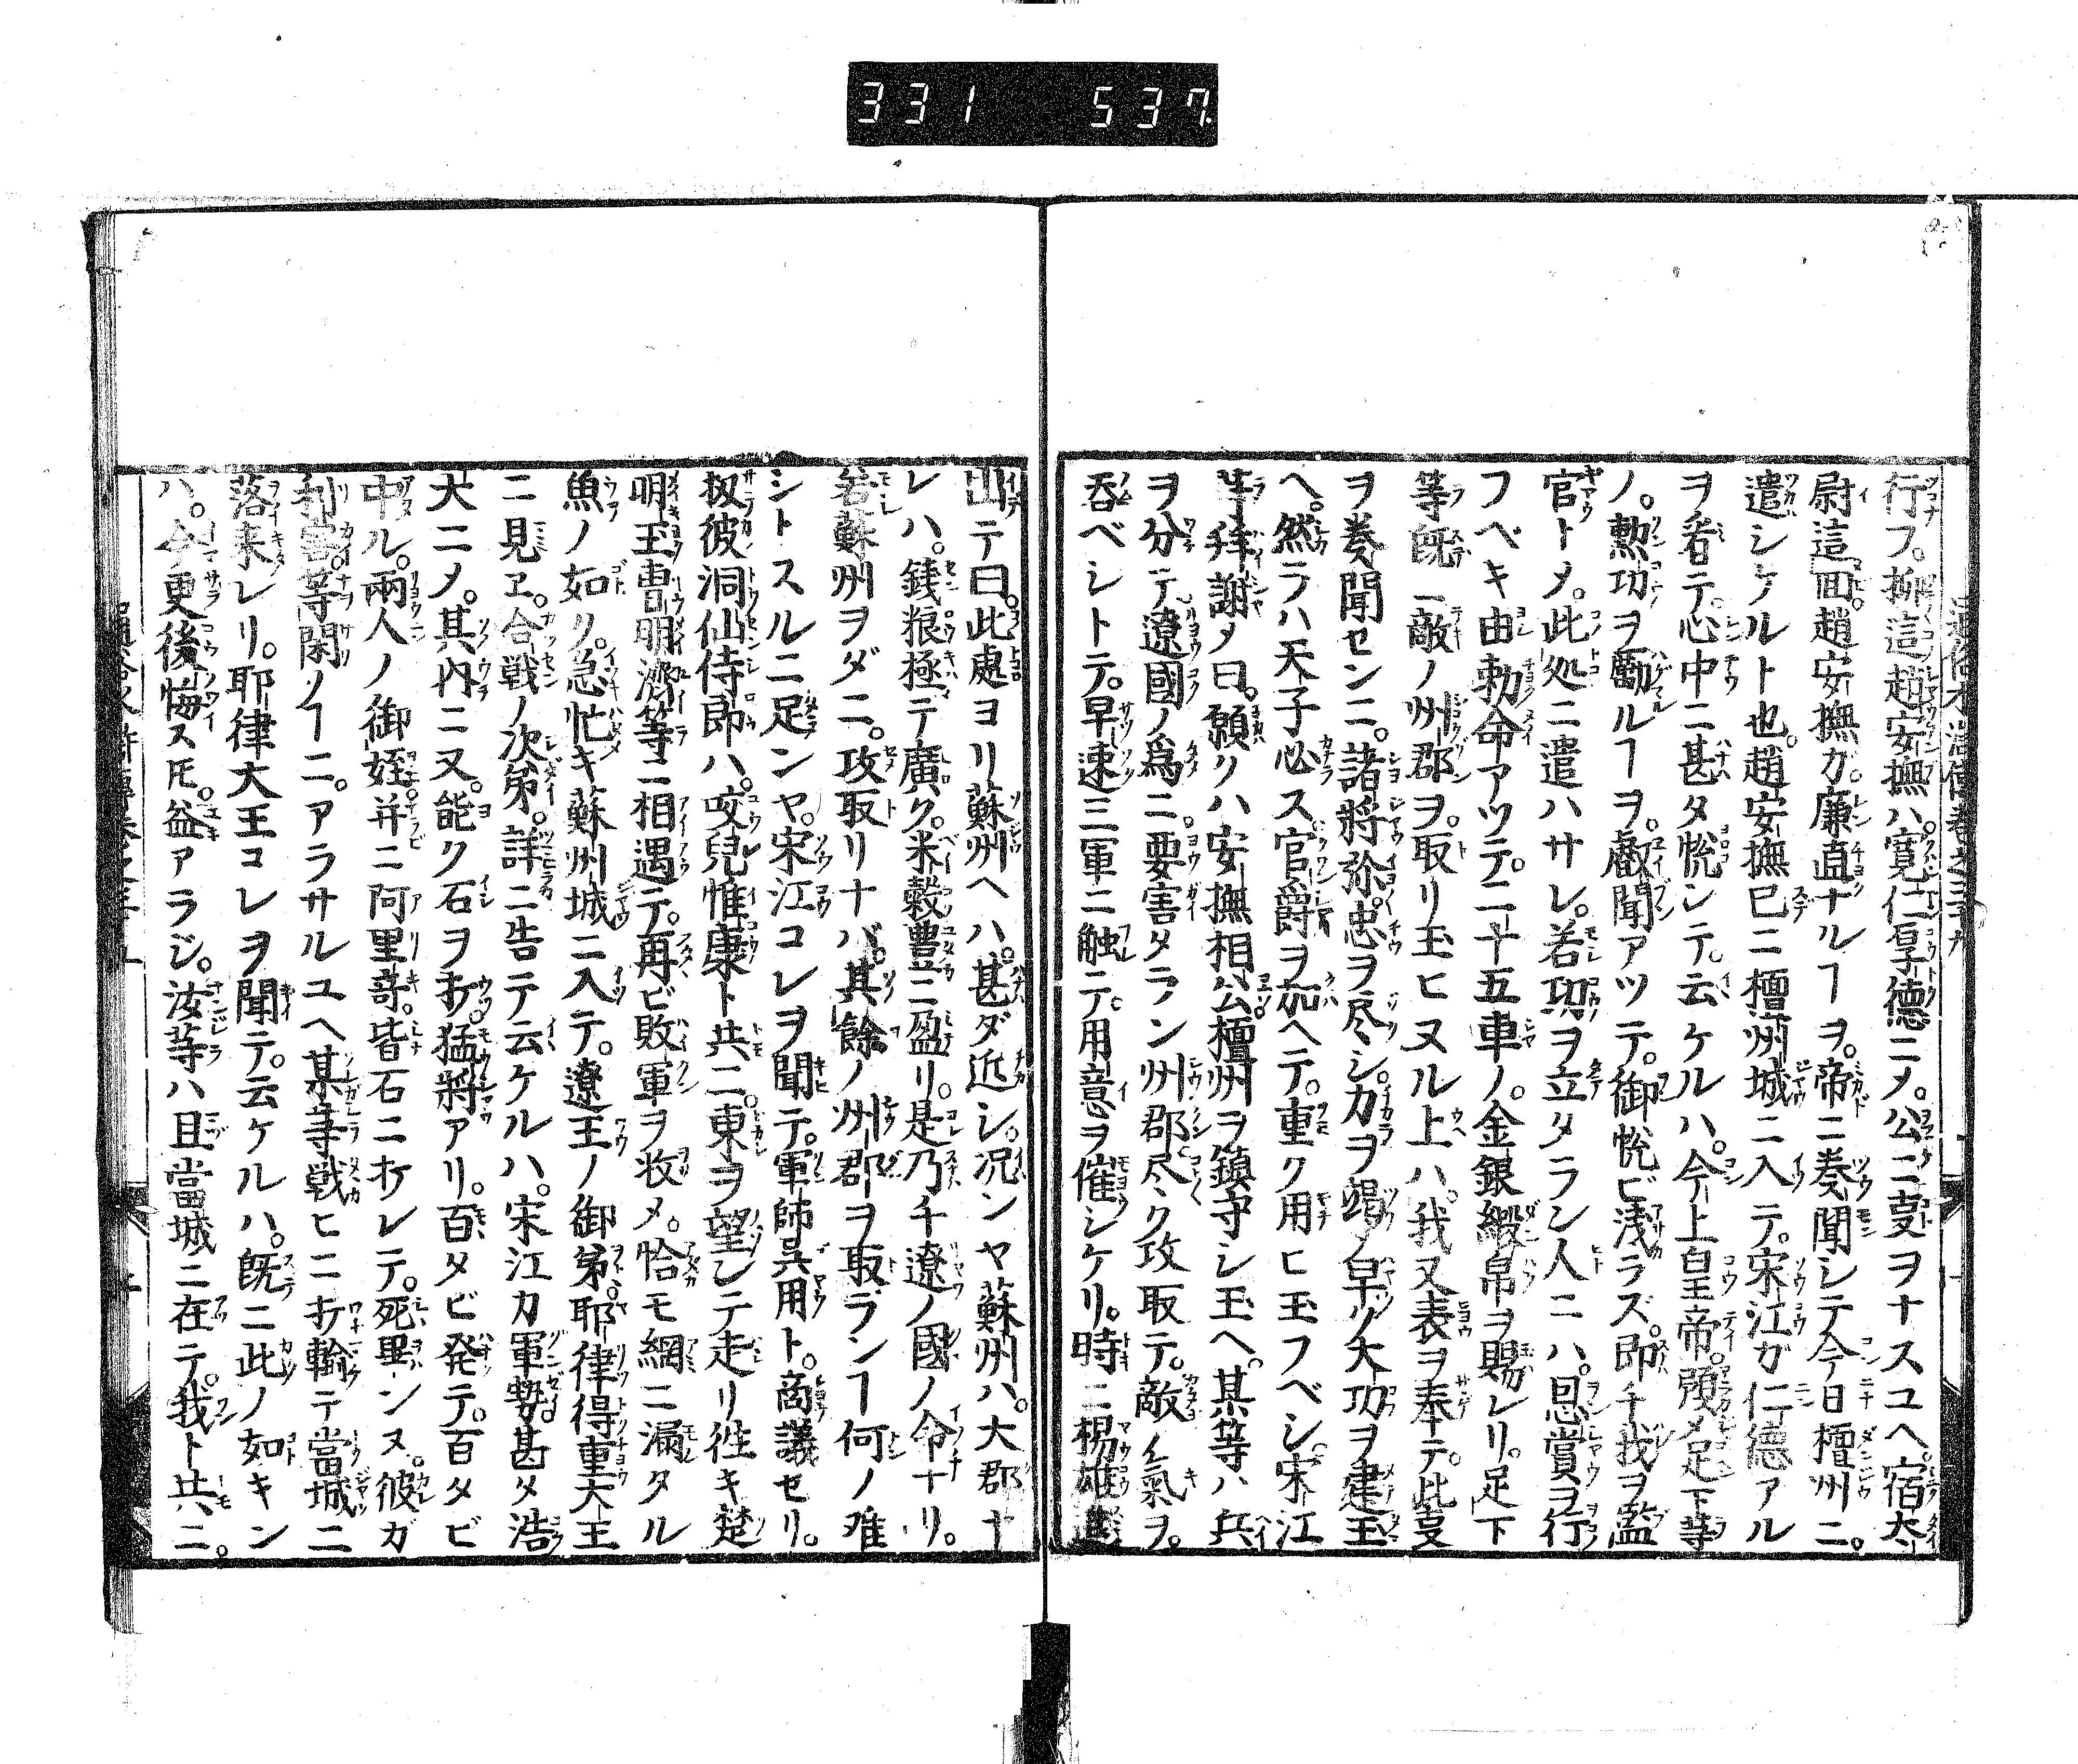 331 537
行フ。抑這趙安撫ハ。寛仁厚徳ニ〆。公ニ㕝ヲナスユヘ。宿太
尉這回趙安撫ガ。廉直ナルヿヲ。帝ニ奏聞シテ今日檀州ニ。
遣シケルト也。趙安撫已ニ檀州城ニ入テ。宋江ガ仁德アル
ヲ看テ。心中ニ甚タ恱ンテ。云ケルハ。今上皇帝。頭〆足下等
ノ。勲功ヲ勵ルヿヲ。叡聞アツテ。御恱ビ浅ラズ。即チ我ヲ監
官ト〆。此処ニ遣ハサレ。若功ヲ立タラン人ニハ。恩賞ヲ行
フベキ由勅命アツテ。二十五車ノ。金銀緞帛ヲ賜レリ。足下
等既ニ敵ノ州郡ヲ。取リ玉ヒヌル上ハ。我又表ヲ奉テ。此㕝
ヲ奏聞センニ。諸將弥忠ヲ尽シ。力ヲ竭〆早ク大功ヲ建玉
ヘ。然ラハ天子必ス官爵ヲ加ヘテ。重ク用ヒ玉フベシ。宋江
等拜謝〆曰。願クハ安撫相公檀州ヲ鎮守シ玉ヘ。某等ハ兵
ヲ分テ遼國ノ爲ニ要害タラン州郡尽ク攻取テ。敵ノ氣ヲ。
呑ベシトテ。早速三軍ニ触テ。用意ヲ催シケリ。時ニ楊雄進
出テ曰。此處ヨリ蘇州ヘハ。甚ダ近シ。况ンヤ蘇州ハ。大郡ナ
レハ。銭粮極テ廣ク。米穀豊ニ盈リ。是乃チ遼ノ國ノ命ナリ。
若蘇州ヲダニ。攻取リナバ。其餘ノ州郡ヲ取ランヿ何ノ难
シトスルニ足ンヤ。宋江コレヲ聞テ。軍師呉用ト。商議セリ。
扨彼洞仙侍郎ハ。咬兒惟康ト共ニ。東ヲ望シテ走リ徃キ楚
明玉曹明濟等ニ相遇テ。再ビ敗軍ヲ收メ。恰モ網ニ漏タル
魚ノ如リ。急忙キ蘇州城ニ入テ。遼王ノ御弟。耶律得重大王
ニ見ヱ。合戦ノ次第。詳ニ告テ云ケルハ。宋江カ軍勢。甚タ浩
大ニ〆。其内ニ又。能ク石ヲ打。猛將アリ。百タビ発テ。百タビ
中ル。兩人ノ御姪。并ニ阿里奇。皆石ニ打レテ。死畢ンヌ。彼ガ
利害。等閑ノヿニ。アラサルユヘ某等戦ヒニ打輸テ當城ニ
落来レリ。耶律大王コレヲ聞テ。云ケルハ。既ニ此ノ如キン
ハ。今更後悔スㇳモ。益アラジ。汝等ハ且當城ニ在テ。我ト共ニ。